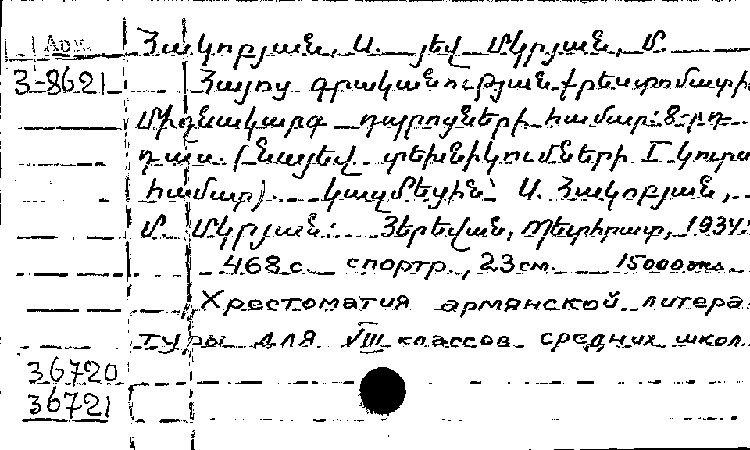 Арм.
Հակոբյան, Ս. յեվ Մկրյան, Մ.
3-8621 Հայոց գրականության քրեստոմատիա
Միջնակարգ դպրոցների համար: 8-րդ
դաս. (նայեվ տեխնիկումների I կուրսի
համար). Կազմեցին՝ Ս. Հակոբյան,
Մ. Մկրյան: Յերեվան, Պետհրատ, 1934:
468 с. с портр., 23 см. 15000 экз.
Хрестоматия армянской литера
туры для VIII классов средних школ.
36720
36721